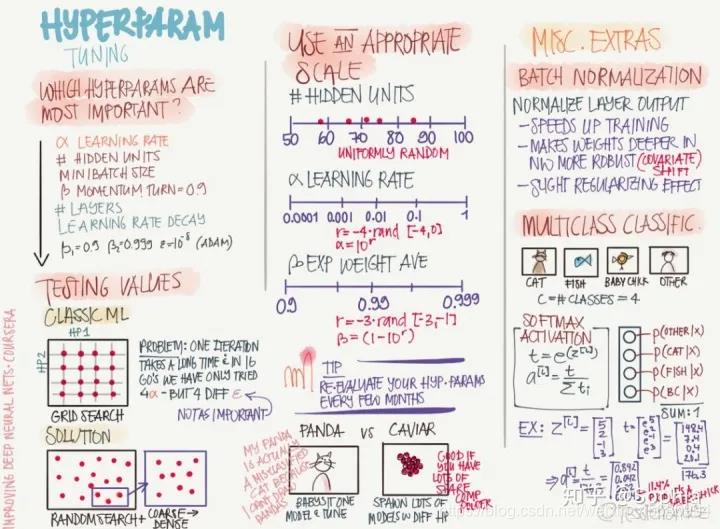 HYPERPARAM
TUNING
WHICH HYPERPARAMS ARE
MOST IMPORTANT?
α LEARNING RATE
# HIDDEN UNITS
MINIBATCH SIZE
β MOMENTUM TURN = 0.9
# LAYERS
LEARNING RATE DECAY
β₁=0.9 β₂=0.999 ε=10⁻⁸ (ADAM)
TESTING VALUES
CLASSIC ML
HP1
HP2
GRID SEARCH
PROBLEM: ONE ITERATION
TAKES A LONG TIME & IN 16
GO'S WE HAVE ONLY TRIED
4α - BUT 4 DIFF ε
NOT AS IMPORTANT
SOLUTION
RANDOM SEARCH + COARSE→
DENSE
IMPROVING DEEP NEURAL NETS: COURSERA
USE AN APPROPRIATE
SCALE
# HIDDEN UNITS
50 60 70 80 90 100
UNIFORMLY RANDOM
α LEARNING RATE
0.0001 0.001 0.01 0.1 1
r=-4·rand [-4,0]
α=10ʳ
β EXP WEIGHT AVE
0.9 0.99 0.999
r=-3·rand [-3,-1]
β=(1-10ʳ)
TIP
RE-EVALUATE YOUR HYP. PARAMS
EVERY FEW MONTHS
PANDA VS CAVIAR
MY PANDA
IS ACTUALLY
A
CAT BECAUSE
I CAN'T DRAW
PANDAS
BABYSIT ONE
MODEL & TUNE
GOOD IF
YOU HAVE
LOTS OF
SPARE
COMP
POWER
SPAWN LOTS OF
MODELS W DIFF HP
MISC. EXTRAS
BATCH NORMALIZATION
NORMALIZE LAYER OUTPUT
- SPEEDS UP TRAINING
- MAKES WEIGHTS DEEPER IN
NW MORE ROBUST (COVARIATE)
SHIFT
- SLIGHT REGULARIZING EFFECT
MULTICLASS CLASSIFIC.
CAT FISH BABY CHICK OTHER
C = # CLASSES = 4
SOFTMAX
ACTIVATION
t = e^(z^[L])
a^[L] = t / Σtᵢ
P(OTHER|X)
P(CAT|X)
P(FISH|X)
P(BC|X)
SUM: 1
EX: z^[L] = [5 2 -1 3] t = [e⁵ e² e⁻¹ e³] = [148.4 7.4 0.4 20.1]
176.3
→ a^[L] =
11.4%
BABY CHICK